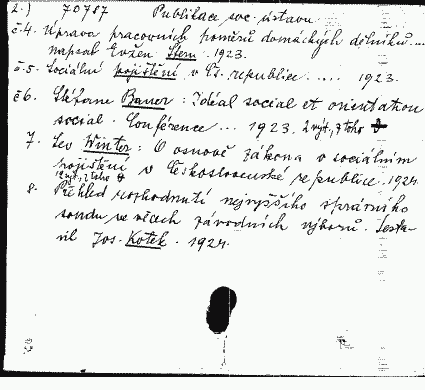 2.) 70787 Publikace soc. ústavu
č.4. Úprava pracovních poměrů domáckých dělníků...
napsal Evžen Stern. 1923.
č.5. Sociální pojištění v Čs. republice..... 1923.
č6. Stéfane Bauer: Idéal social et orientation
social. Conférence... 1923. 2 výt., z toho
7. Lev Winter: O osnově zákona o sociálním
pojištění v Československé republice. 1924
12 výt., z toho
8. Přehled rozhodnutí nejvyššího správního
soudu ve věcech závodních výborů. Sesta-
vil Jos. Kotek. 1924.